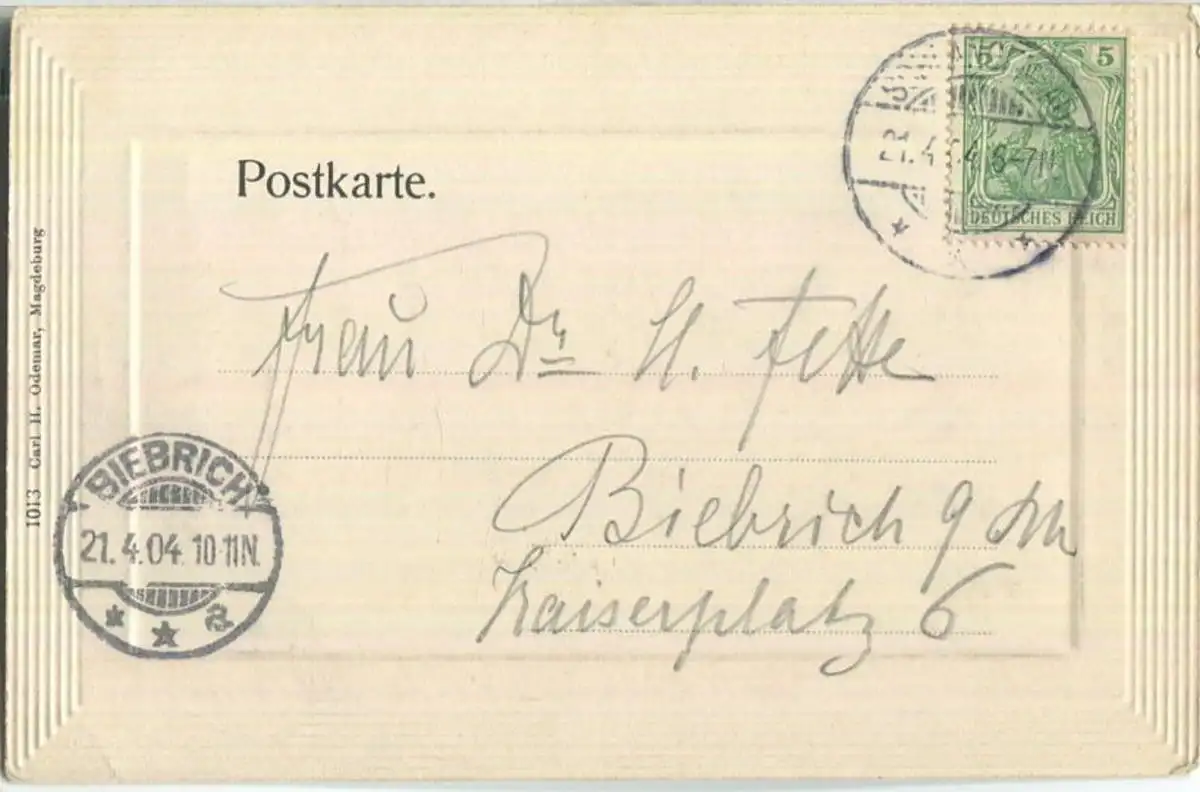 Postkarte.
5 5
DEUTSCHES REICH
21.4.04 6-7N.
Frau Dr. H. Fette
Biebrich a Rh
Kaiserplatz 6
BIEBRICH
21.4.04. 10-11N.
a
1013 Carl H. Odemar, Magdeburg